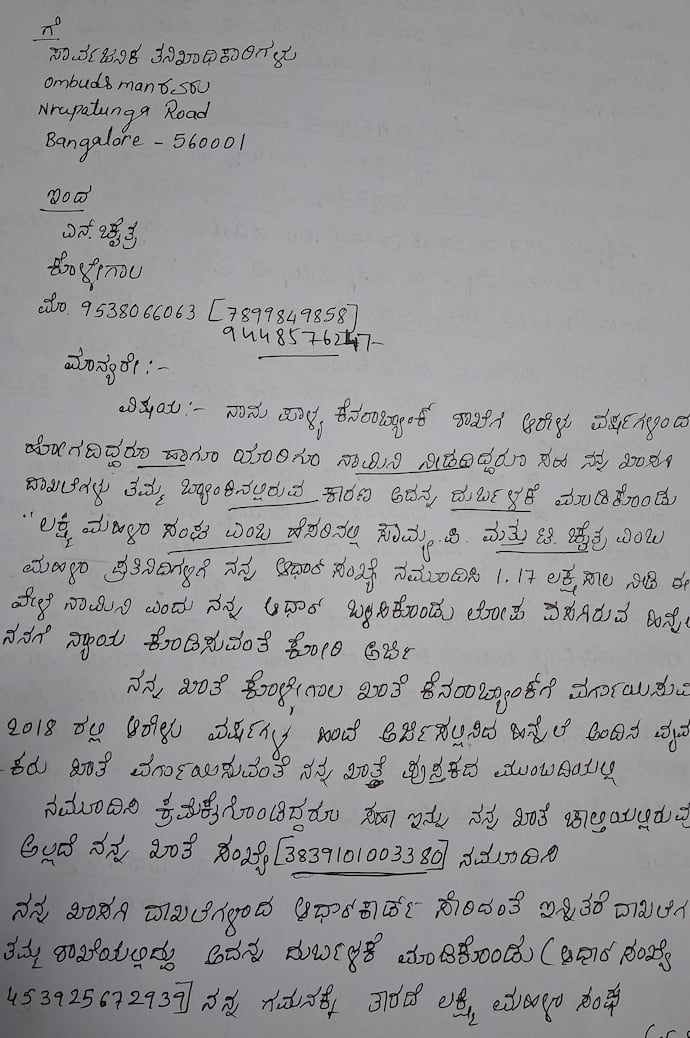 ಗೆ
ಸಾರ್ವಜನಿಕ ತನಿಖಾಧಿಕಾರಿಗಳು
ombudsman ರವರು
Nrupatunga Road
Bangalore - 560001
ಇಂದ
ಎನ್. ಚೈತ್ರ
ಕೊಳ್ಳೇಗಾಲ
ಮೊ. 9538066063 [7899849858]
9448576247
ಮಾನ್ಯರೇ :-
ವಿಷಯ :- ನಾನು ಪಾಳ್ಯ ಕೆನರಾಬ್ಯಾಂಕ್ ಶಾಖೆಗೆ ಆರೇಳು ವರ್ಷಗಳಿಂದ
ಹೋಗದಿದ್ದರೂ ಹಾಗೂ ಯಾರಿಗೂ ನಾಮಿನಿ ನೀಡದಿದ್ದರೂ ಸಹ ನನ್ನ ಖಾಸಗಿ
ದಾಖಲೆಗಳು ತಮ್ಮ ಬ್ಯಾಂಕಿನಲ್ಲಿರುವ ಕಾರಣ ಅದನ್ನ ದುರ್ಬಳಕೆ ಮಾಡಿಕೊಂಡು
"ಲಕ್ಷ್ಮಿ ಮಹಿಳಾ ಸಂಘ ಎಂಬ ಹೆಸರಿನಲ್ಲಿ ಸೌಮ್ಯ. ಪಿ. ಮತ್ತು ಟಿ. ಚೈತ್ರ ಎಂಬ
ಮಹಿಳಾ ಪ್ರತಿನಿಧಿಗಳಿಗೆ ನನ್ನ ಆಧಾರ ಸಂಖ್ಯೆ ನಮೂದಿಸಿ 1.17 ಲಕ್ಷ ಸಾಲ ನೀಡಿ ಈ
ವೇಳೆ ನಾಮಿನಿ ಎಂದು ನನ್ನ ಆಧಾರ ಬಳಸಿಕೊಂಡು ಲೋಪ ಎಸಗಿರುವ
ನನಗೆ ನ್ಯಾಯ ಕೊಡಿಸುವಂತೆ ಕೋರಿ ಅರ್ಜಿ
ನನ್ನ ಖಾತೆ ಕೊಳ್ಳೇಗಾಲ ಖಾತೆ ಕೆನರಾಬ್ಯಾಂಕ್‌ಗೆ ವರ್ಗಾಯಿಸುವ
2018 ರಲ್ಲಿ ಆರೇಳು ವರ್ಷಗಳ ಹಿಂದೆ ಅರ್ಜಿಸಲ್ಲಿಸಿದ ಹಿನ್ನೆಲೆ ಅಂದಿನ ವ್ಯವ
ಕರು ಖಾತೆ ವರ್ಗಾಯಿಸುವಂತೆ ನನ್ನ ಖಾತೆ ಪುಸ್ತಕದ ಮುಂಬದಿಯಲ್ಲಿ
ನಮೂದಿಸಿ ಕ್ರಮಕೈಗೊಂಡಿದ್ದರೂ ಸಹಾ ಇನ್ನು ನನ್ನ ಖಾತೆ ಚಾಲ್ತಿಯಲ್ಲಿರುವು
ಅಲ್ಲದೆ ನನ್ನ ಖಾತೆ ಸಂಖ್ಯೆ [3839101003380] ನಮೂದಿಸಿ
ನನ್ನ ಖಾಸಗಿ ದಾಖಲೆಗಳಾದ ಆಧಾರಕಾರ್ಡ್ ಸೇರಿದಂತೆ ಇನ್ನಿತರೆ ದಾಖಲೆಗ
ತಮ್ಮ ಶಾಖೆಯಲ್ಲಿದ್ದು ಅದನ್ನ ದುರ್ಬಳಕೆ ಮಾಡಿಕೊಂಡು (ಆಧಾರ ಸಂಖ್ಯೆ
453925672939] ನನ್ನ ಗಮನಕ್ಕೆ ತಾರದೆ ಲಕ್ಷ್ಮಿ ಮಹಿಳಾ ಸಂಘ